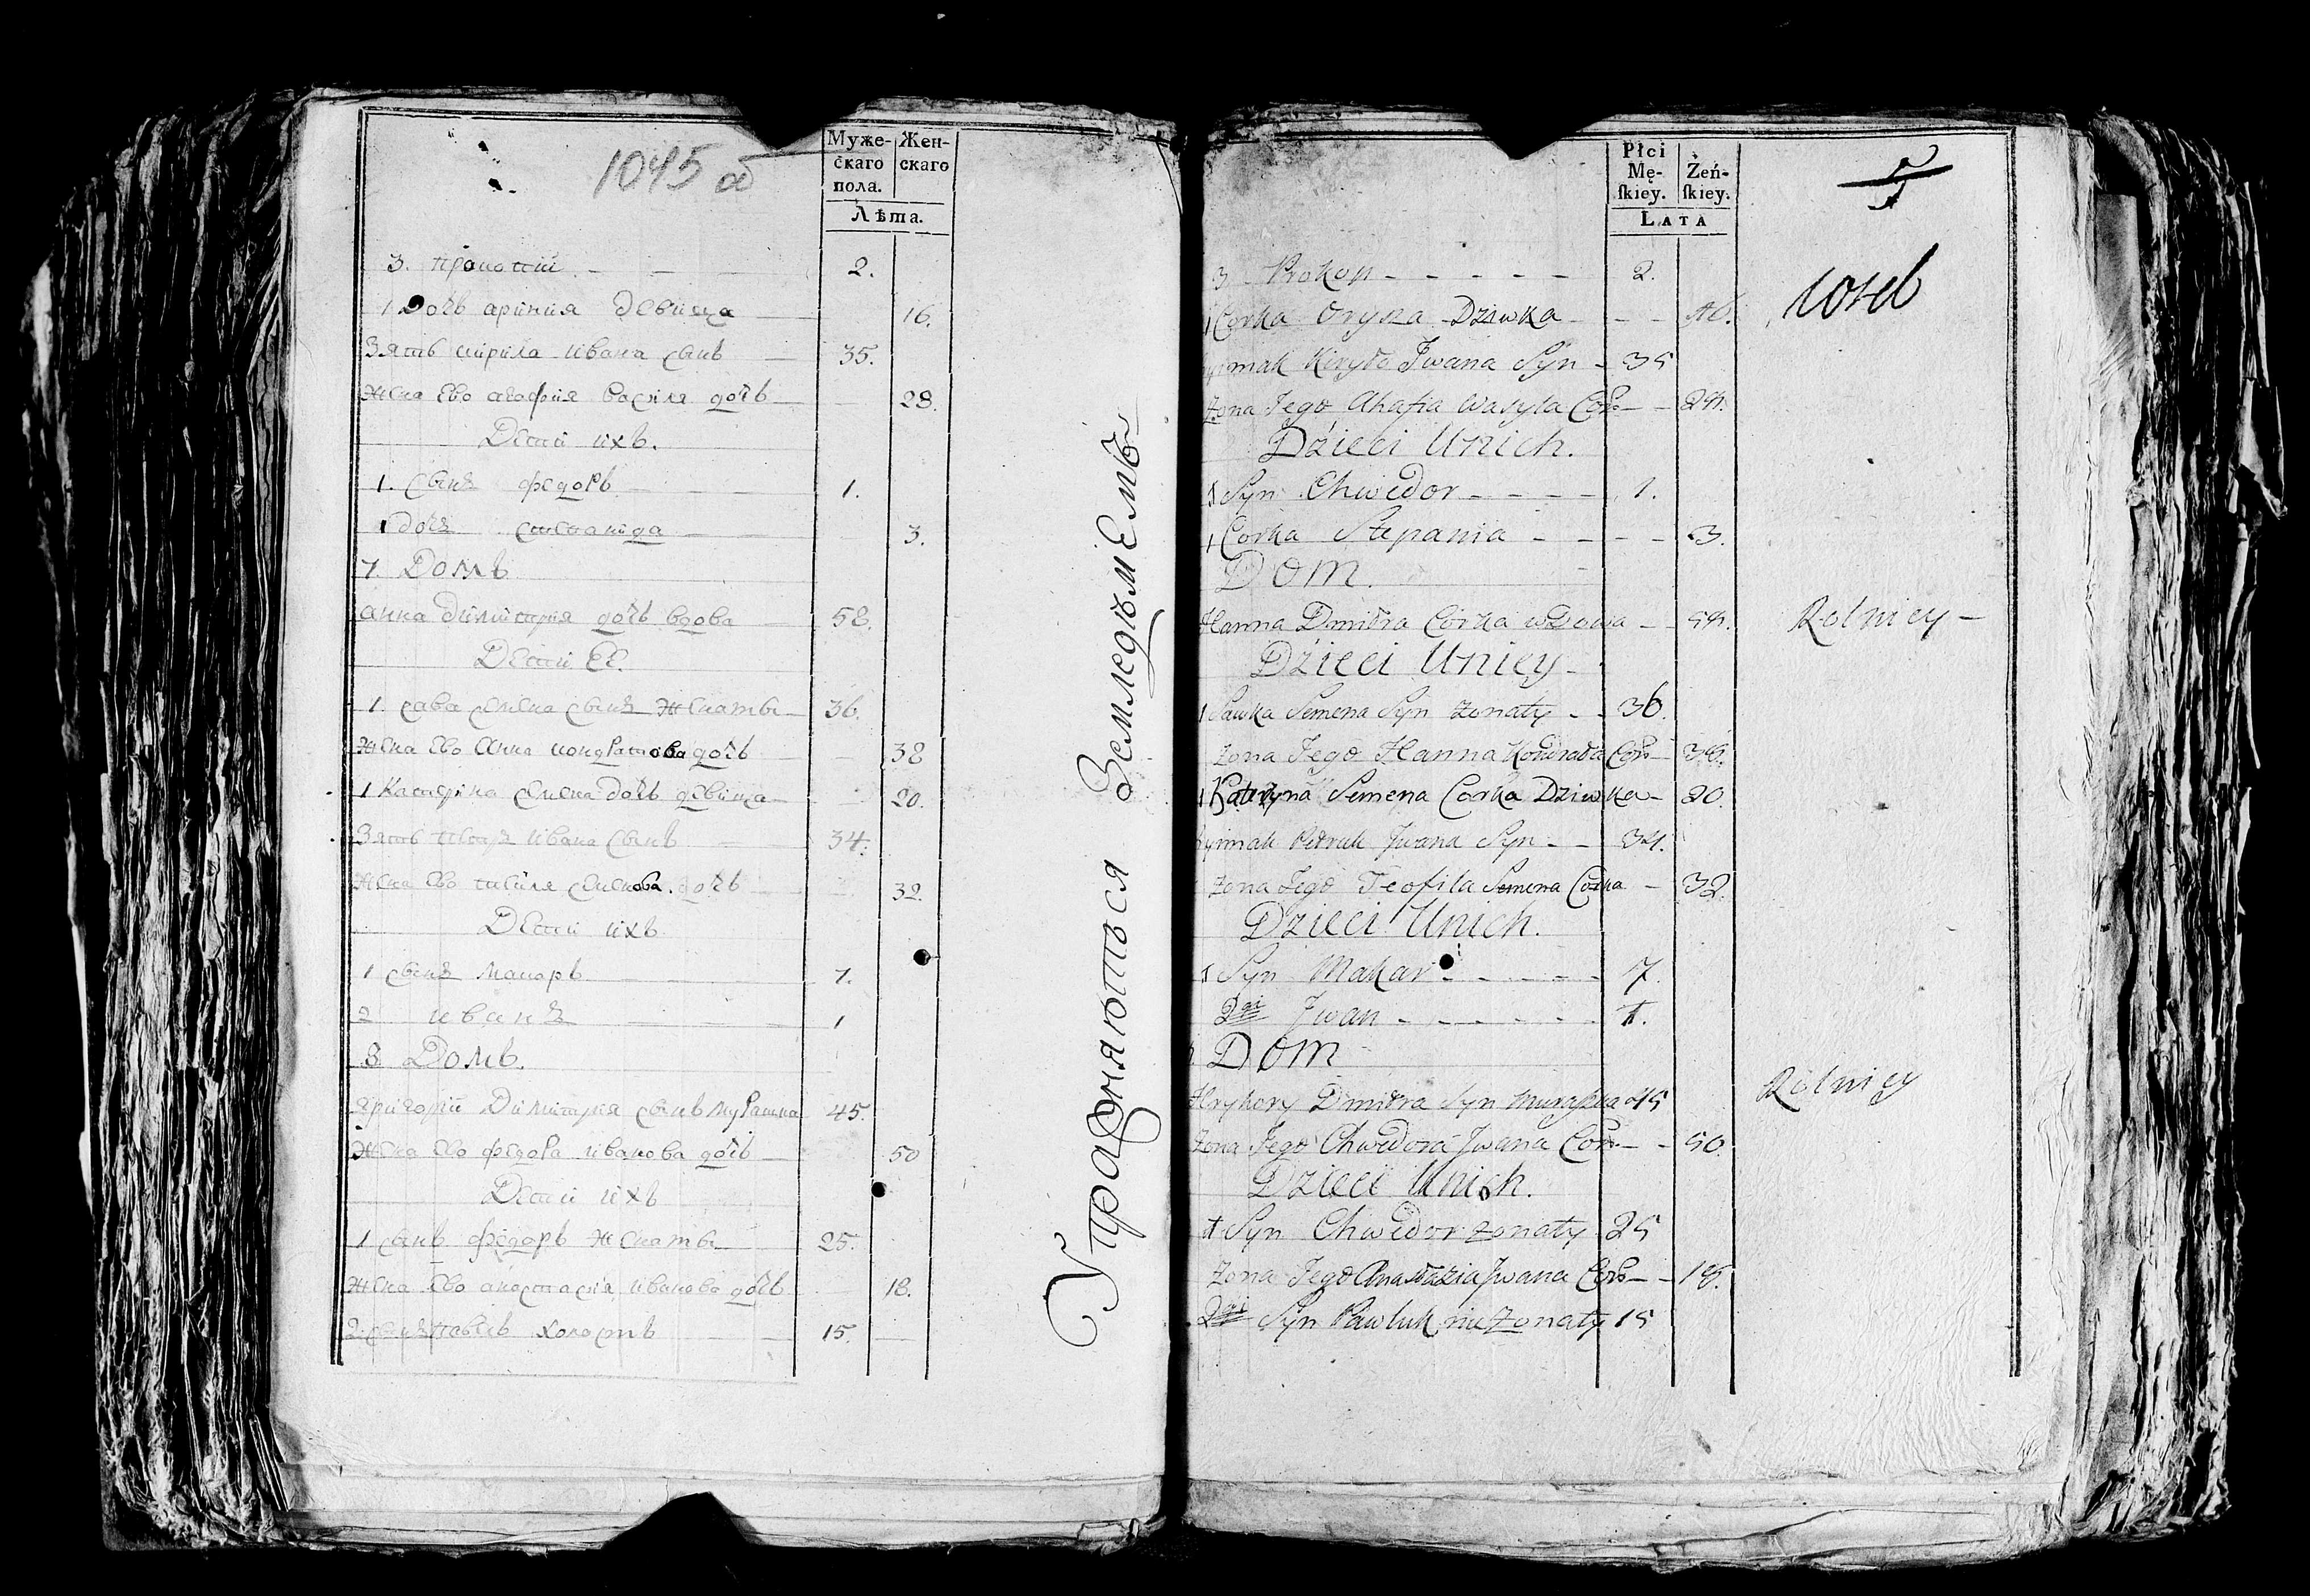 1045 об
Муже-
скаго
пола.
Жен-
скаго
Лѣта.
3. прокопий 2.
1 дочь ариния девица 16.
Зять кирила ивана сынъ 35.
жена ево агафия василя дочь 28.
Дети ихъ.
1. сынъ федоръ 1.
1 дочь степанида 3.
7 Домъ
анна димитрия дочь вдова 58.
Дети ее.
1. сава семена сынъ женатъ 36.
жена ево анна кондратова дочь 38
1 Катерина семена дочь девица 20.
Зять петръ ивана сынъ 34.
жена ево семенова дочь 32.
Дети ихъ
1 сынъ макаръ 7.
2 иванъ 1
8 Домъ.
григорий Димитрия сынъ мурашка 45.
жена ево федора иванова дочь 50
Дети ихъ
1 сынъ федоръ женатъ 25.
жена ево анастасия иванова дочь 18.
2 сынъ павелъ холостъ 15.
Упражняются Земледѣлиемъ
Płci
Mę-
ſkiey.
Żeń-
ſkiey.
LATA
3 Prokop - - - - - 2.
1 Corka Oryna Dziwka - - - 16.
Pryimak Kiryło Jwana Syn - 35
Zona Jego Ahafia Wasyla Cor: - - 28.
Dzieci Unich.
1 Syn Chwedor - - - - 1.
1 Corka Stepania - - - - 3.
Dom.
Hanna Dmitra Corka wdowa - - 58.
Rolnicy -
Dzieci Uniey -
1 Sawka Semena Syn zonaty - - 36.
Zona Jego Hanna Kondrata Cor: - 38.
1 Kateryna Semena Corka Dziwka - 20.
Pryimak Petruk Jwana Syn - - 34.
Zona Jego Teofila Semena Corka - 32.
Dzieci Unich.
1 Syn Makar - - - - - 7.
2gi Jwan - - - - - - 1.
Dom
Hryhory Dmitra Syn Muraszka 45
Rolnicy
Zona Jego Chwedora Jwana Cor: - - 50.
Dzieci Unich.
1 Syn Chwedor zonaty 25
Zona Jego Anastazia Jwana Cor: - - 18.
2gi Syn Pawluk niezonaty 15